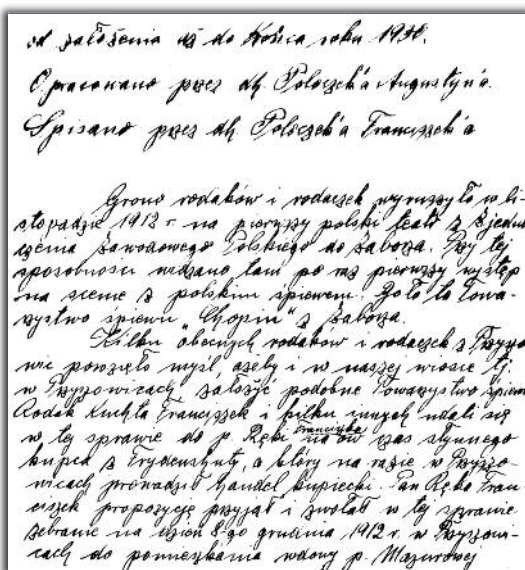 od założenia aż do końca roku 1930.
Opracowano przez dh. Poloczek'a Augustyn'a.
Spisano przez dh. Poloczek'a Franciszek'a
Grono rodaków i rodaczek wyruszyło w li-
stopadzie 1912 r. na pierwszy polski teatr z Zjedno
czenia Zawodowego Polskiego do Zaborza. Przy tej
sposobności widziano tam po raz pierwszy występ
na scenie z polskim śpiewem. Było to Towa-
rzystwo śpiewu "Chopin" z Zaborza.
Kilku obecnych rodaków i rodaczek z Przyszo
wic powzięło myśl, ażeby i w naszej wiosce tj.
w Przyszowicach założyć podobne Towarzystwo śpiewu
Rodak Kuchta Franciszek i kilku innych udali się
w tej sprawie do p. Ręki Franciszka na ów czas słynnego
kupca z Frydenshuty, a który na razie w Przyszo-
wicach prowadził handel kupiecki. Pan Ręka Fran-
ciszek propozycję przyjął i zwołał w tej sprawie
zebranie na dzień 8-go grudnia 1912 r. w Przyszowi-
cach do pomieszkania wdowy p. Mazurowej